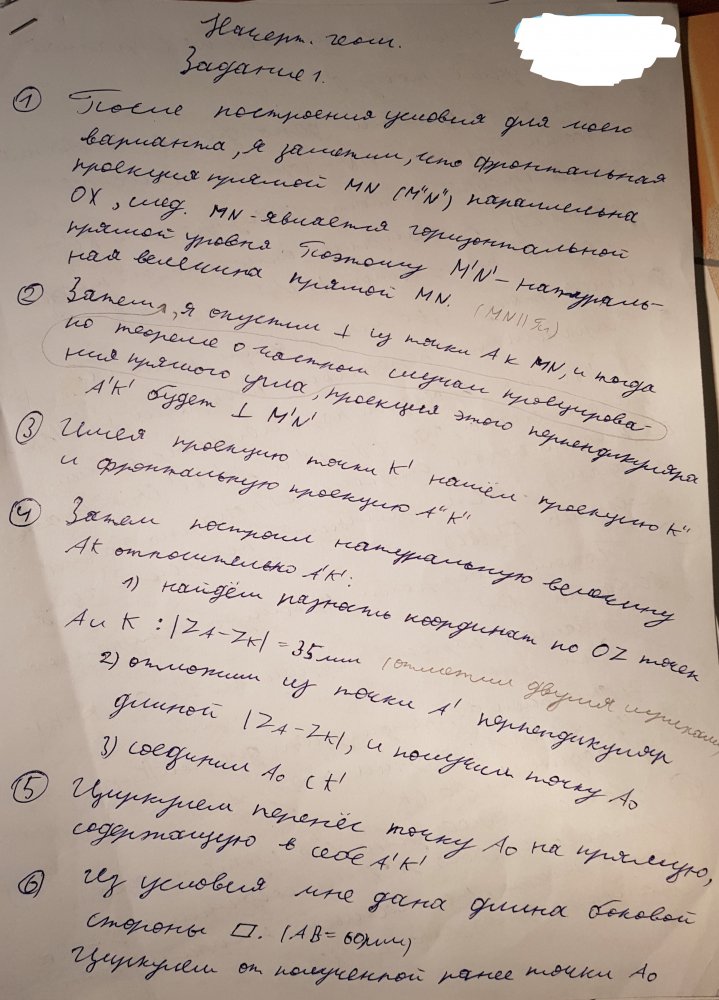 Начерт. геом.
Задание 1.
① После построения условия для моего
варианта, я заметил, что фронтальная
проекция прямой MN (M"N") параллельна
OX, след. MN - является горизонтальной
прямой уровня. Поэтому M'N' - натураль-
ная величина прямой MN. (MN||П1)
② Затем, я опустил ⊥ из точки A к MN, и тогда
по теореме о частном случаи проецирова-
ния прямого угла, проекция этого перпендикуляра
A'K' будет ⊥ M'N'
③ Имея проекцию точки K' нашёл проекцию K"
и фронтальную проекцию A"K"
④ Затем построил натуральную величину
AK относительно A'K':
1) найдём разность координат по OZ точек
A и K : |ZA-ZK| = 35мм (отметил двумя штрихами
2) отложим из точки A' перпендикуляр
длиной |ZA-ZK|, и получим точку A0
3) соединим A0 с K'
⑤ Циркулем перенёс точку A0 на прямую,
содержащую в себе A'K'
⑥ Из условия мне дана длина боковой
стороны □. (AB = 60мм)
Циркулем от полученной ранее точки A0